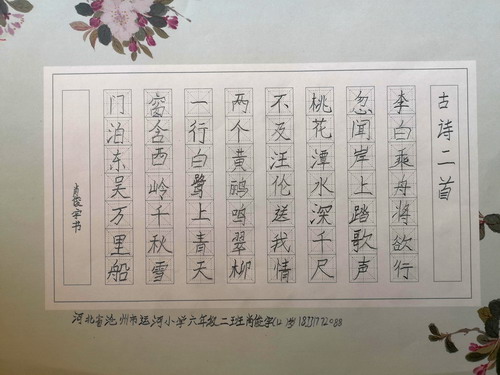 古诗二首
李白乘舟将欲行
忽闻岸上踏歌声
桃花潭水深千尺
不及汪伦送我情
两个黄鹂鸣翠柳
一行白鹭上青天
窗含西岭千秋雪
门泊东吴万里船
肖俊宇书
河北省沧州市运河小学六年级二班肖俊宇